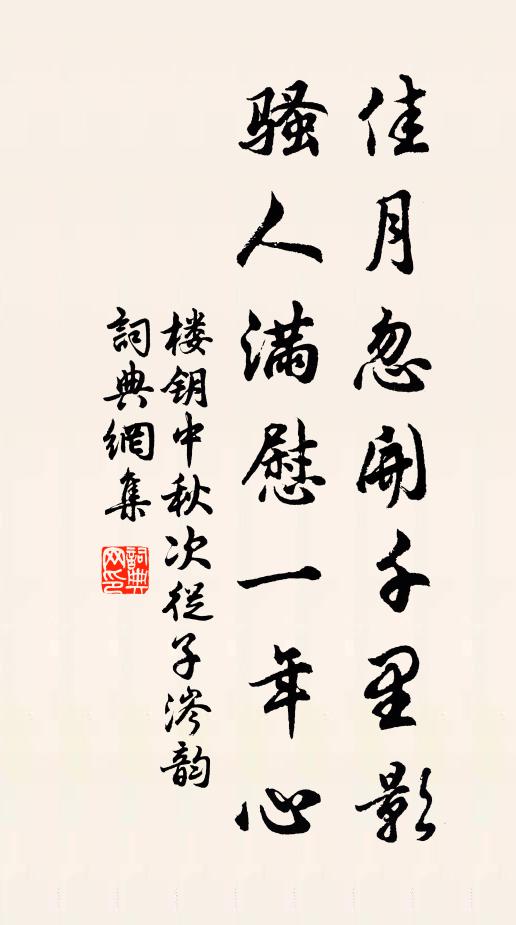 佳月忽開千里影
騷人滿慰一年心
楼钥中秋次從子涔韵
詞典網集
詞典网印